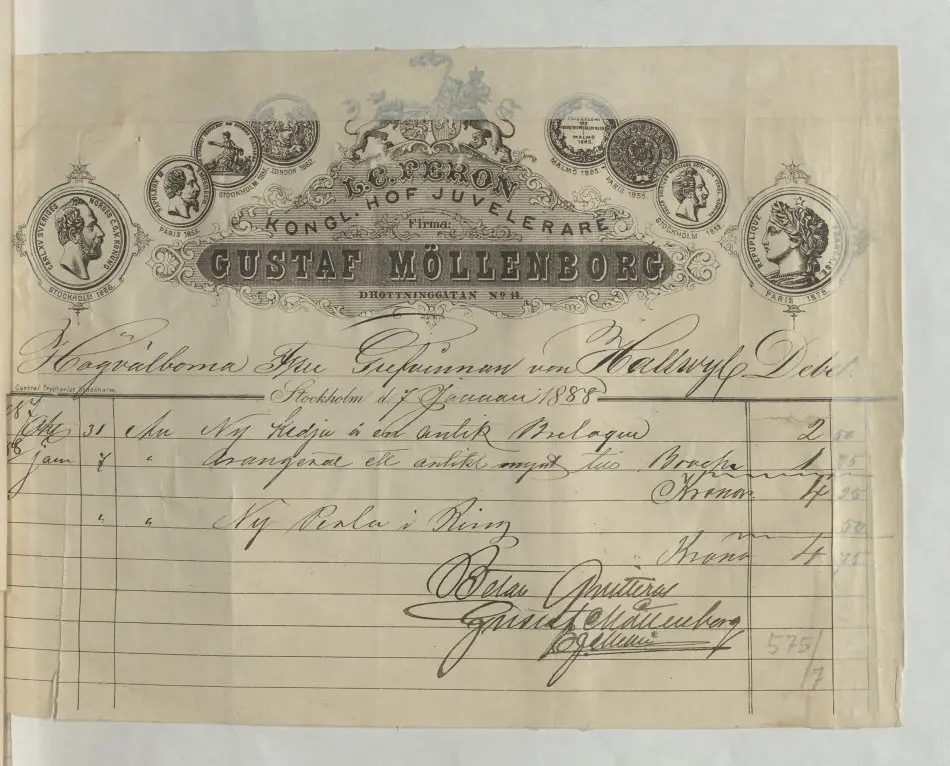 CARL XV SVERIGES NORGES G. O. V. KONUNG
STOCKHOLM 1866.
NAPOLEON III
PARIS 1855.
STOCKHOLM
LONDON 1862.
MALMÖ
1865.
MALMÖ 1865.
PARIS 1855.
STOCKHOLM
REPUBLIQUE FRANÇAISE
PARIS 1878.
L. C. FERON
KONGL. HOF JUVELERARE
Firma:
GUSTAF MÖLLENBORG
DROTTNINGGATAN No 14.
Högvälborna Fru Grefvinnan von Hallwyl Debet
Central Tryckeriet Stockholm
Stockholm d. 7 Januari 1888
187
31 Ny Kedja å en antik Breloque 2 50
88
jan 7 " Arangerat ett antikt mynt till Broche 1 75
Kronor 4 25
" " Ny Perla i Ring 50
Kronor 4 75
Betalt Qvitteras
Gustaf Möllenborg
575/
7